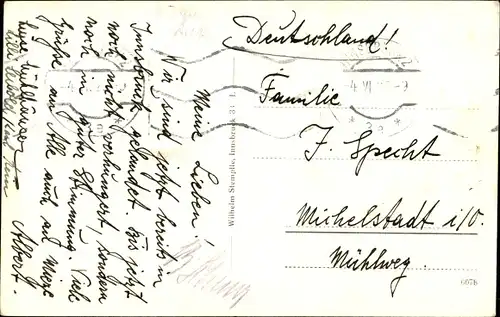 Meine Lieben!
Wir sind jetzt bereits in
Innsbruck gelandet. Bis jetzt
noch nicht verhungert, sondern
noch in guter Stimmung. Viele
Grüße an Alle auch auf Wiege
Albert.
Deutschland!
Familie
J. Specht
Michelstadt i/O.
Mühlweg.
Wilhelm Stempfle, Innsbruck